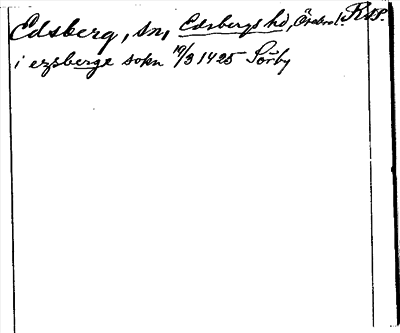 Edsberg, sn, Edsbergs hd, Örebro l. RAP.
i ezsberge sokn 10/3 1425 Sörby